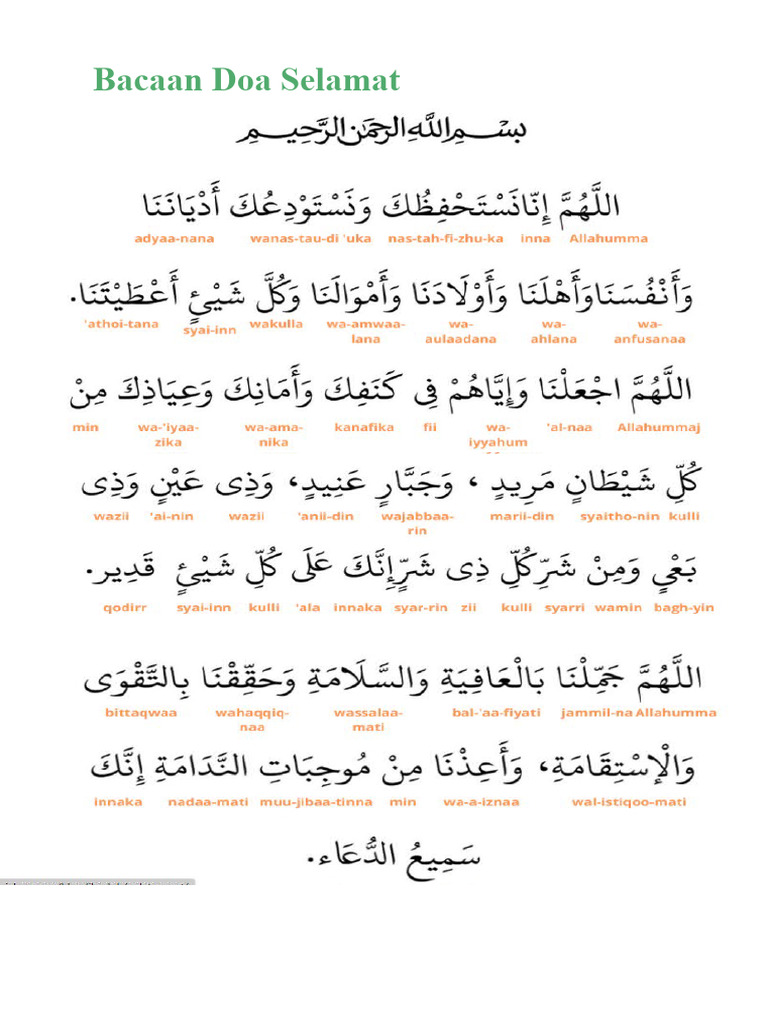 Bacaan Doa Selamat
بِسْمِ اللَّهِ الرَّحْمَٰنِ الرَّحِيمِ
اللَّهُمَّ إِنَّانَسْتَحْفِظُكَ وَنَسْتَوْدِعُكَ أَدْيَانَنَا
adyaa-nana wanas-tau-di 'uka nas-tah-fi-zhu-ka inna Allahumma
وَأَنْفُسَنَاوَأَهْلَنَا وَأَوْلَادَنَا وَأَمْوَالَنَا وَكُلَّ شَيْئٍ أَعْطَيْتَنَا.
'athoi-tana syai-inn wakulla wa-amwaa- wa- wa- wa-
lana aulaadana ahlana anfusanaa
اللَّهُمَّ اجْعَلْنَا وَإِيَّاهُمْ فِى كَنَفِكَ وَأَمَانِكَ وَعِيَاذِكَ مِنْ
min wa-'iyaa- wa-ama- kanafika fii wa- 'al-naa Allahummaj
zika nika iyyahum
كُلِّ شَيْطَانٍ مَرِيدٍ ، وَجَبَّارٍ عَنِيدٍ، وَذِى عَيْنٍ وَذِى
wazii 'ai-nin wazii 'anii-din wajabbaa- marii-din syaitho-nin kulli
rin
بَغْيٍ وَمِنْ شَرِّكُلِّ ذِى شَرٍّإِنَّكَ عَلَى كُلِّ شَيْئٍ قَدِير.
qodirr syai-inn kulli 'ala innaka syar-rin zii kulli syarri wamin bagh-yin
اللَّهُمَّ جَمِّلْنَا بَالْعَافِيَةِ وَالسَّلَامَةِ وَحَقِّقْنَا بِالتَّقْوَى
bittaqwaa wahaqqiq- wassalaa- bal-'aa-fiyati jammil-na Allahumma
naa mati
وَالْإِسْتِقَامَةِ، وَأَعِذْنَا مِنْ مُوجِبَاتِ النَّدَامَةِ إِنَّكَ
innaka nadaa-mati muu-jibaa-tinna min wa-a-iznaa wal-istiqoo-mati
سَمِيعُ الدُّعَاء.